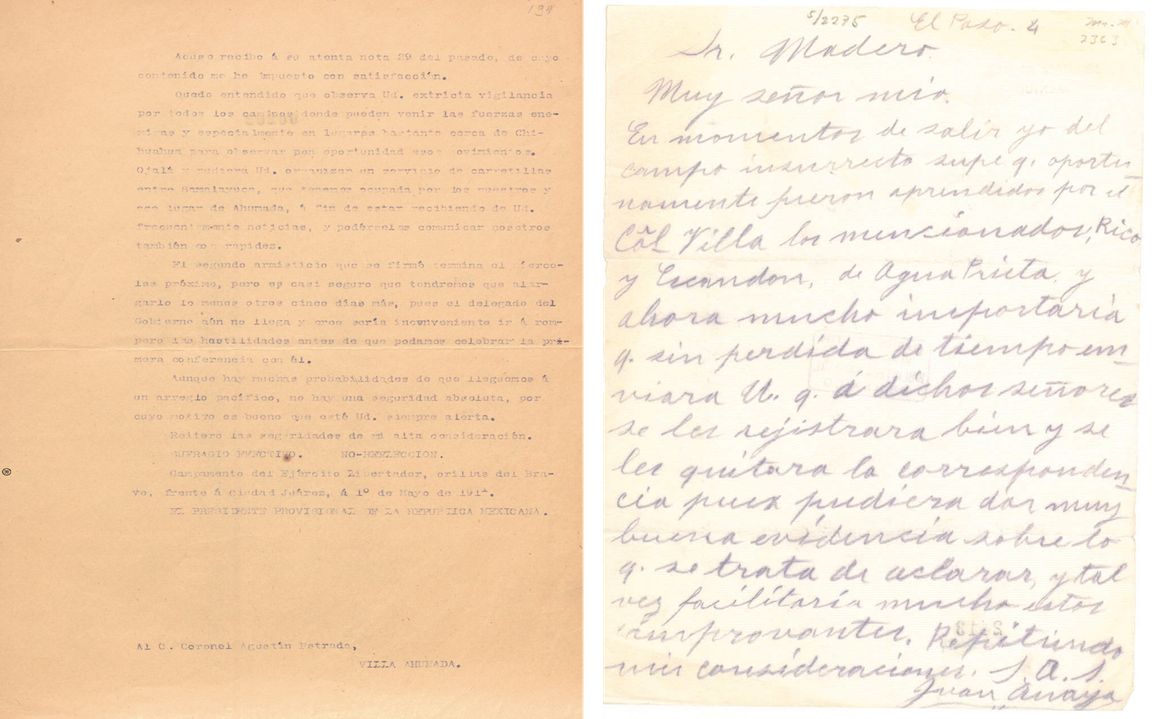 194
Acuso recibo á su atenta nota 29 del pasado, de cuyo
contenido me he impuesto con satisfacción.
Quedo entendido que observa Ud. extricta vigilancia
por todos los caminos donde pueden venir las fuerzas ene-
migas y especialmente en lugares bastante cerca de Chi-
huahua para observar con oportunidad esos movimientos.
Ojalá y pudiera Ud. organizar un servicio de carretillas
entre Samalayuca, que tenemos ocupada por los nuestros y
ese lugar de Ahumada, á fin de estar recibiendo de Ud.
frecuentemente noticias, y podérselas comunicar nosotros
también con rapidez.
El segundo armisticio que se firmó termina el miérco-
les próximo, pero es casi seguro que tendremos que alar-
garlo lo menos otros cinco días más, pues el delegado del
Gobierno aún no llega y creo sería inconveniente ir á rom-
pero las hostilidades antes de que podamos celebrar la pri-
mera conferencia con él.
Aunque hay muchas probabilidades de que lleguemos á
un arreglo pacífico, no hay una seguridad absoluta, por
cuyo motivo es bueno que esté Ud. siempre alerta.
Reitero las seguridades de mi alta consideración.
SUFRAGIO EFECTIVO. NO-REELECCION.
Campamento del Ejército Libertador, orillas del Bra-
vo, frente á Ciudad Juárez, á 1º de Mayo de 1911.
EL PRESIDENTE PROVISIONAL DE LA REPUBLICA MEXICANA.
Al C. Coronel Agustín Estrada,
VILLA AHUMADA.
5/2275 El Paso. 4
2363
Sr. Madero.
Muy señor mio.
En momentos de salir yo del
campo insurrecto supe q. oportu-
namente fueron aprendidos por el
Cõl Villa los mencionados, Rico
y Escandon, de Agua Prieta y
ahora mucho importaria
q. sin perdida de tiempo en-
viara U. q. á dichos señores
se les rejistrara bien y se
les quitara la corresponden-
cia pues pudiera dar muy
buena evidencia sobre lo
q. se trata de aclarar, y tal
vez facilitaria mucho estos
comprovantes. Repitiendo
mis consideraciones. S. A. S.
Juan Anaya